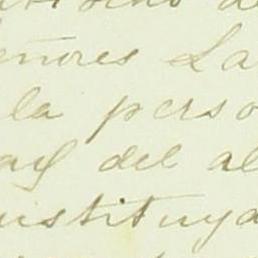 eñores La
la perso
del al
nstituya